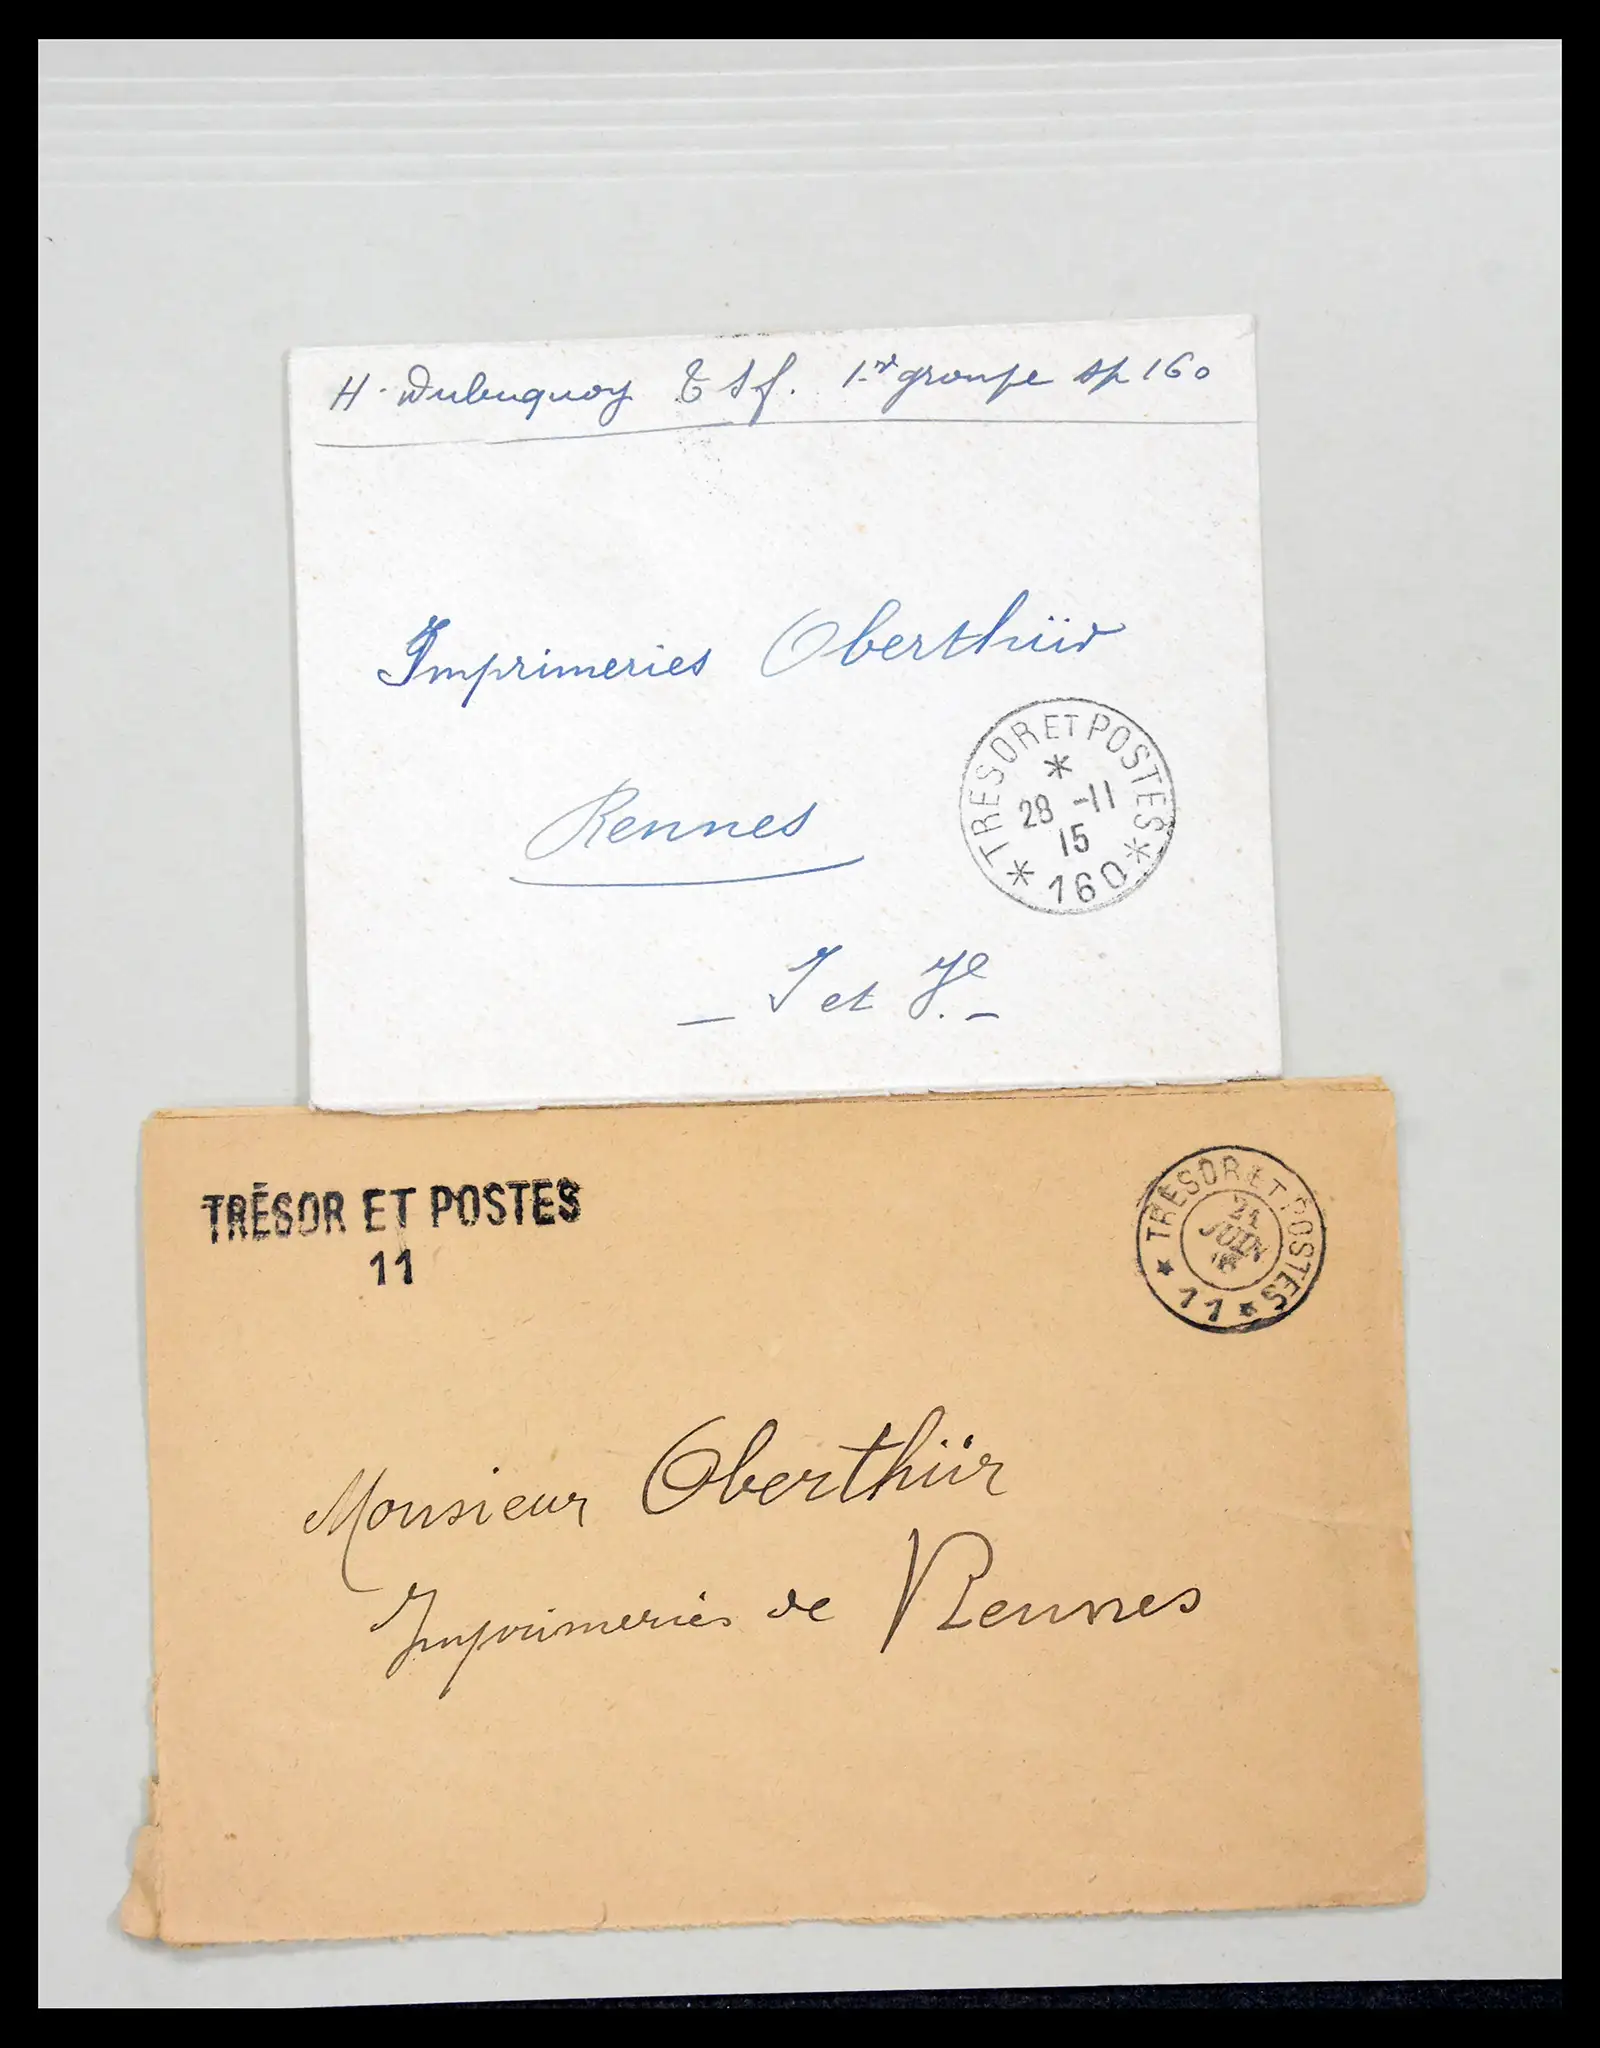 H. Dubuquoy T S f. 1er groupe sp 160
Imprimeries Oberthür
TRESOR ET POSTES
*
28 -11
15
* 160 *
Rennes
_ I et V. _
TRÉSOR ET POSTES
11
TRÉSOR ET POSTES
21
JUIN
* 11 *
Monsieur Oberthür
Imprimeries de Rennes